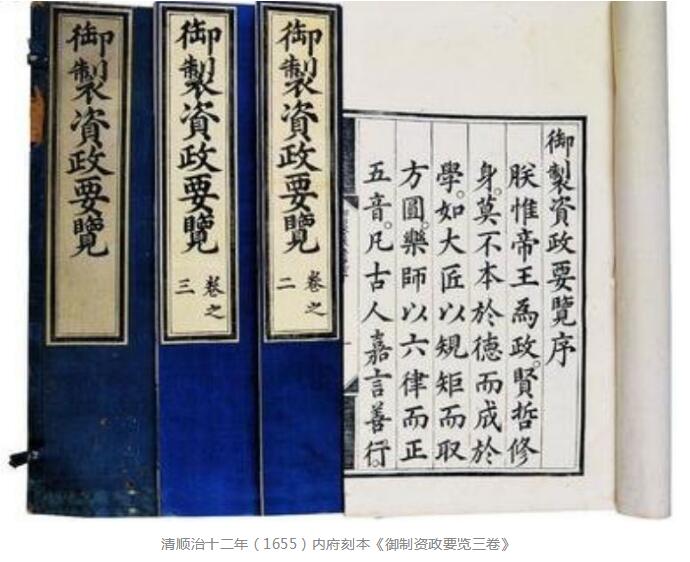 御製資政要覽
御製資政要覽
卷之
三
御製資政要覽
卷之
二
御製資政要覽序
朕惟帝王為政。賢哲修
身。莫不本於德而成於
學。如大匠以規矩而取
方圓。樂師以六律而正
五音。凡古人嘉言善行。
清顺治十二年（1655）内府刻本《御制资政要览三卷》